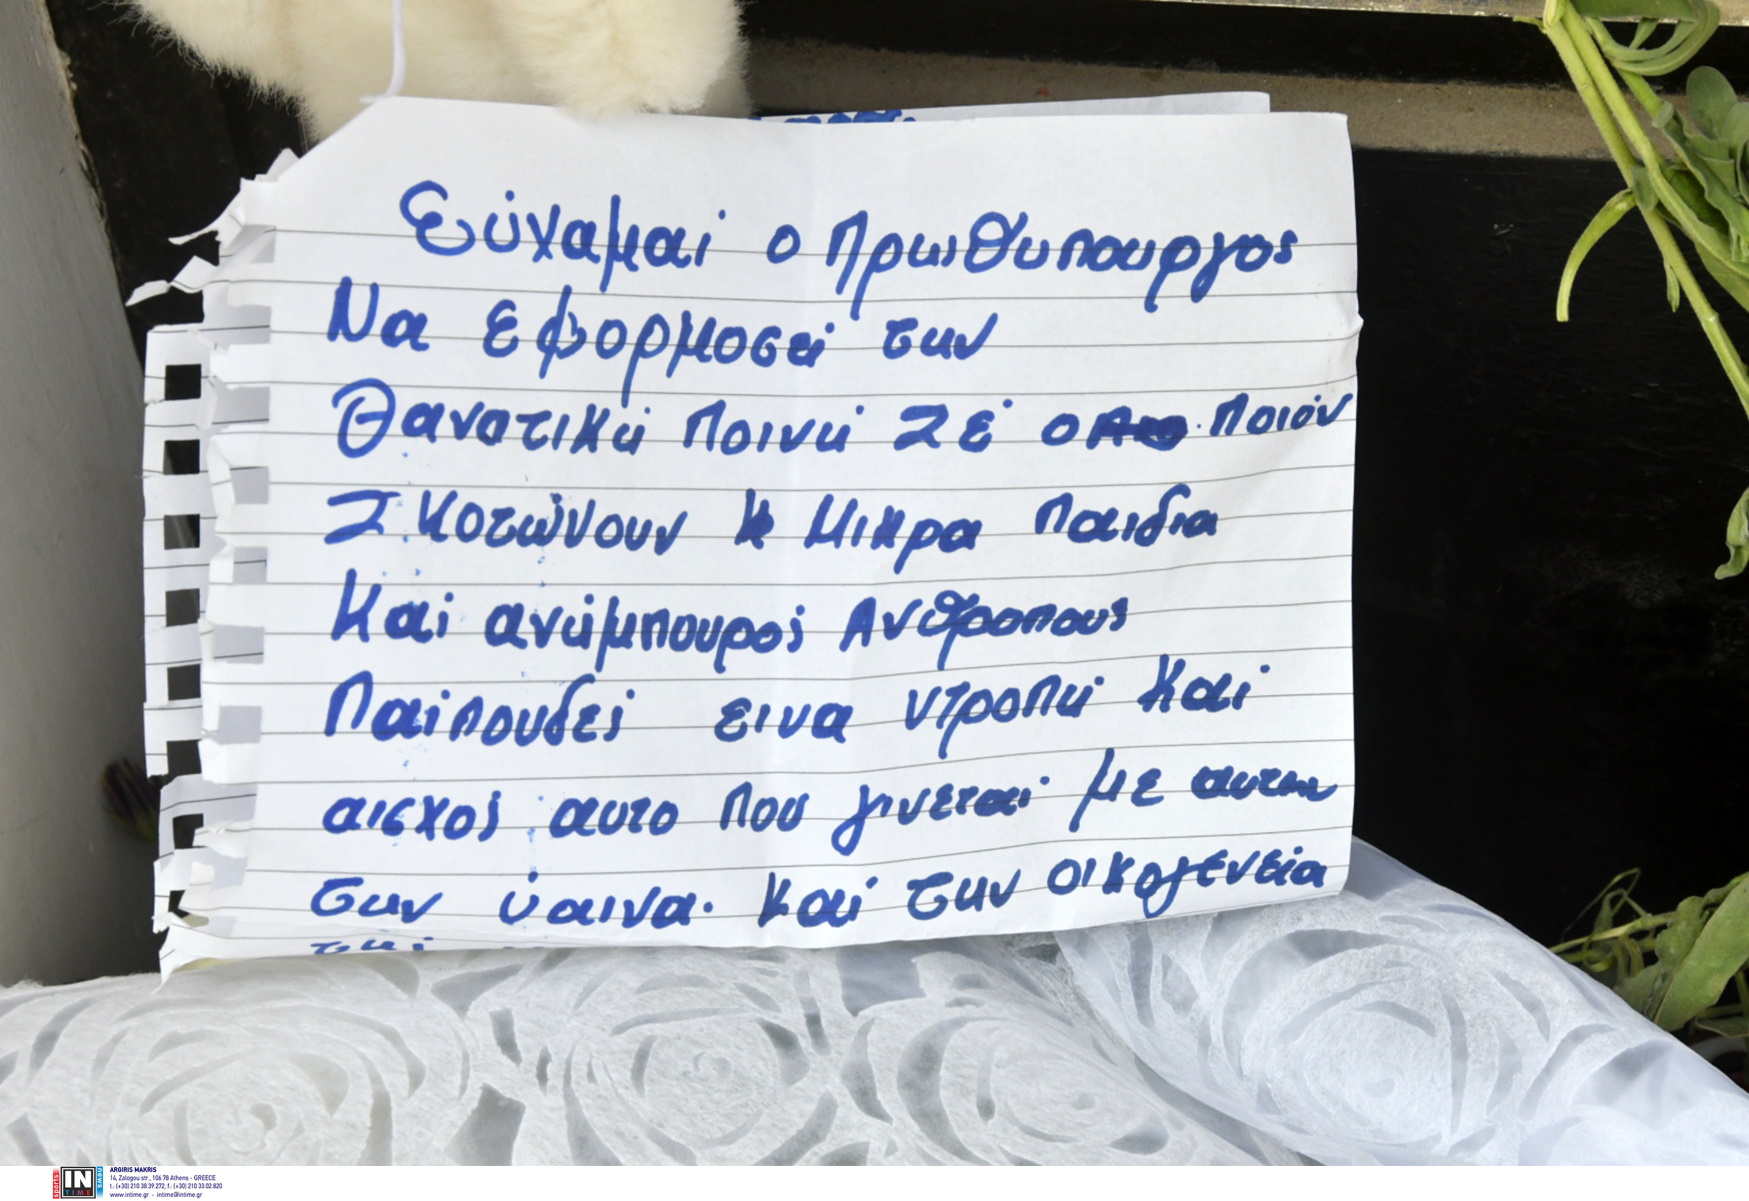 Εύχαμαι ο Πρωθυπουργος
Να εφορμοσει την
Θανατικη Ποινη Σε ο Ποιον
Σκοτώνουν Μικρα παιδια
Και ανήμπουρος Ανθροπους
Παιπουδες εινα ντροπη Και
αισχος αυτο που γινεται με αυτην
την ύαινα. Και την οικογενεία
της
ARGIRIS MAKRIS
14, Zalogou str., 106 78 Athens - GREECE
t.: (+30) 210 38.39.272, f.: (+30) 210 33.02.820
www.intime.gr - intime@intime.gr
sports
IN
TIME
news